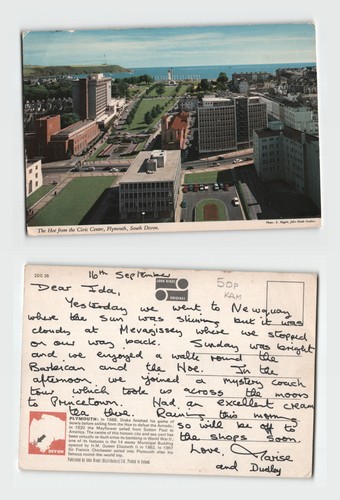 The Hoe from the Civic Centre, Plymouth, South Devon.
2DC 26
16th September
JOHN HINDE
ORIGINAL
50P
KAM
Dear Ida,
Yesterday we went to Newquay
where the sun was shining but it was
cloudy at Mevagissey where we stopped
on our way back. Sunday was bright
and we enjoyed a walk round the
Barbican and the Hoe. In the
afternoon we joined a mystery coach
tour which took us across the moors
to Princetown. Had an excellent cream
tea there. Raining this morning
so will be off to
the shops soon.
Love,
and Dudley
DEVON
PLYMOUTH: In 1588, Drake finished his game of
bowls before sailing from the Hoe to defeat the Armada.
In 1620 the Mayflower sailed from Sutton Pool to
America. The centre of this historic city and sea port has
been virtually re-built since its bombing in World War II;
one of its features is the 14 storey Municipal Building
opened by H.M. Queen Elizabeth II in 1962. In 1967
Sir Francis Chichester sailed into Plymouth after his
famous round the world trip.